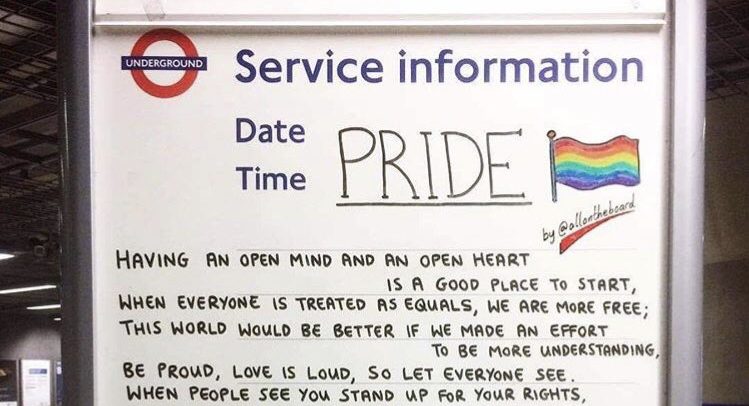 UNDERGROUND
Service information
Date
Time
PRIDE
by @allontheboard
HAVING AN OPEN MIND AND AN OPEN HEART
IS A GOOD PLACE TO START,
WHEN EVERYONE IS TREATED AS EQUALS, WE ARE MORE FREE;
THIS WORLD WOULD BE BETTER IF WE MADE AN EFFORT
TO BE MORE UNDERSTANDING,
BE PROUD, LOVE IS LOUD, SO LET EVERYONE SEE.
WHEN PEOPLE SEE YOU STAND UP FOR YOUR RIGHTS,